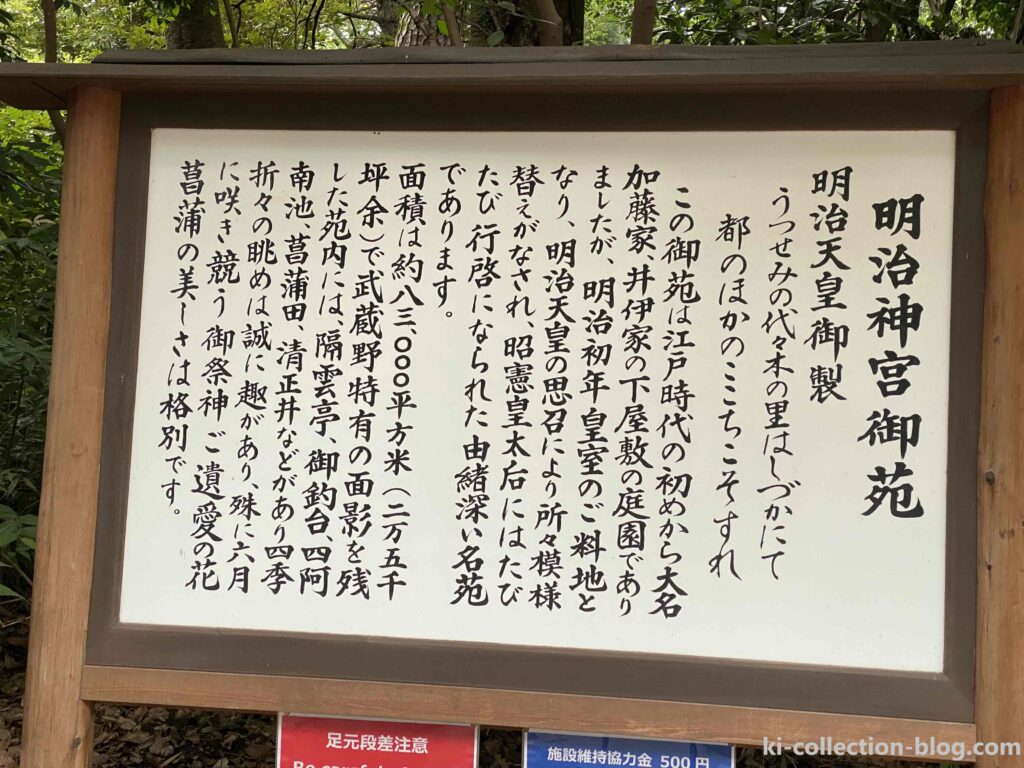 明治神宮御苑
明治天皇御製
うつせみの代々木の里はしづかにて
都のほかのここちこそすれ
この御苑は江戸時代の初めから大名
加藤家、井伊家の下屋敷の庭園であり
ましたが、明治初年皇室のご料地と
なり、明治天皇の思召により所々模様
替えがなされ、昭憲皇太后にはたび
たび行啓になられた由緒深い名苑
であります。
面積は約八三、〇〇〇平方米（二万五千
坪余）で武蔵野特有の面影を残
した苑内には、隔雲亭、御釣台、四阿
南池、菖蒲田、清正井などがあり四季
折々の眺めは誠に趣があり、殊に六月
に咲き競う御祭神ご遺愛の花
菖蒲の美しさは格別です。
足元段差注意
Be careful
施設維持協力金 500円
ki-collection-blog.com